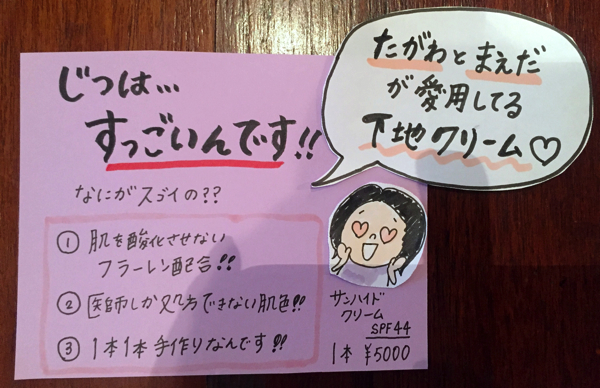 じつは…
すっごいんです!!
たがわとまえだ
が愛用してる
下地クリーム♡
なにがスゴイの??
① 肌を酸化させない
フラーレン配合!!
② 医師しか処方できない肌色!!
③ 1本1本手作りなんです!!
サンハイド
クリーム
SPF44
1本 ¥5000